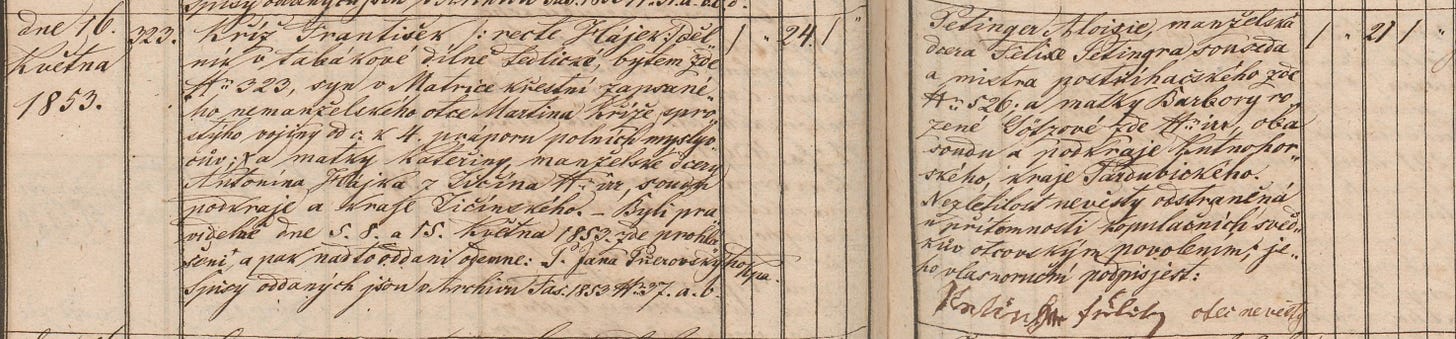 dne 16.
Května
1853.
323.
Kříž František /: recte Hájek :/ děl
ník v tabákové dílně Sedlické, bytem zde
№ 323, syn v Matrice křestní zapsané
ho nemanželského otce Martina Kříže, spro
stýho vojíny od c. k. 4. práporu polních myslyv
a matky Kateřiny, manželské dcery
Antonína Hájka z Jičína №, soudu
podkraje a kraje Jičínského. – Byli pra
videlně dne 5. 8. a 15. Května 1853 zde prohlá
šeni, a pak nadto oddáni odemne: P. Jana
kpa.
Spisy oddaných jsou v Archivu Fas. 1853 № 37. a. b.
1 " 24 1 "
Petinger Aloisie, manželská
dcera Felixe Petingra souseda
a mistra postřihačského zde
№ 526. a matky Barbory ro
zené zde №, oba
soudu a podkraje Kutnohor
ského, kraje Pardubického.
Nezletilost nevěsty odstraněná
v přítomnosti kopulačních svěd
kův otcovským povolením, je
ho vlasnoruční podpis jest:
otec nevěsty
1 " 21 1 "